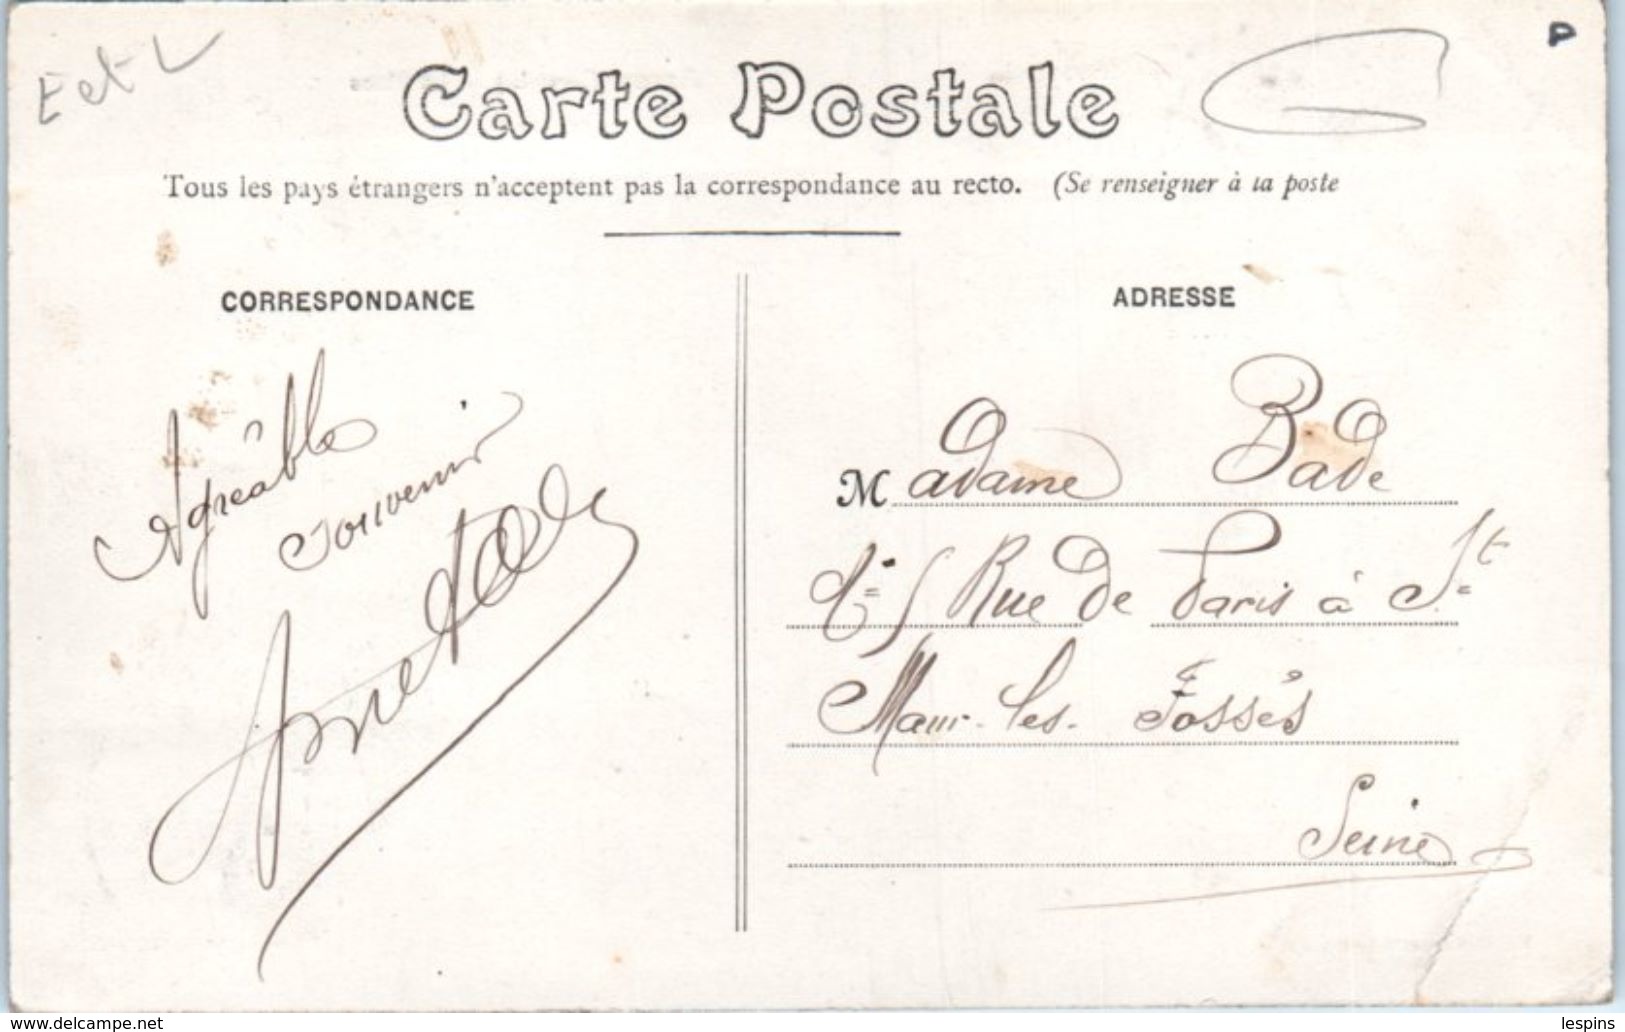 E et L
P
Carte Postale
Tous les pays étrangers n'acceptent pas la correspondance au recto. (Se renseigner à la poste
CORRESPONDANCE
Agréable
souvenir
ADRESSE
Madame Bade
Rue de Paris à St
Maur-les-Fossés
Seine
www.delcampe.net
lespins